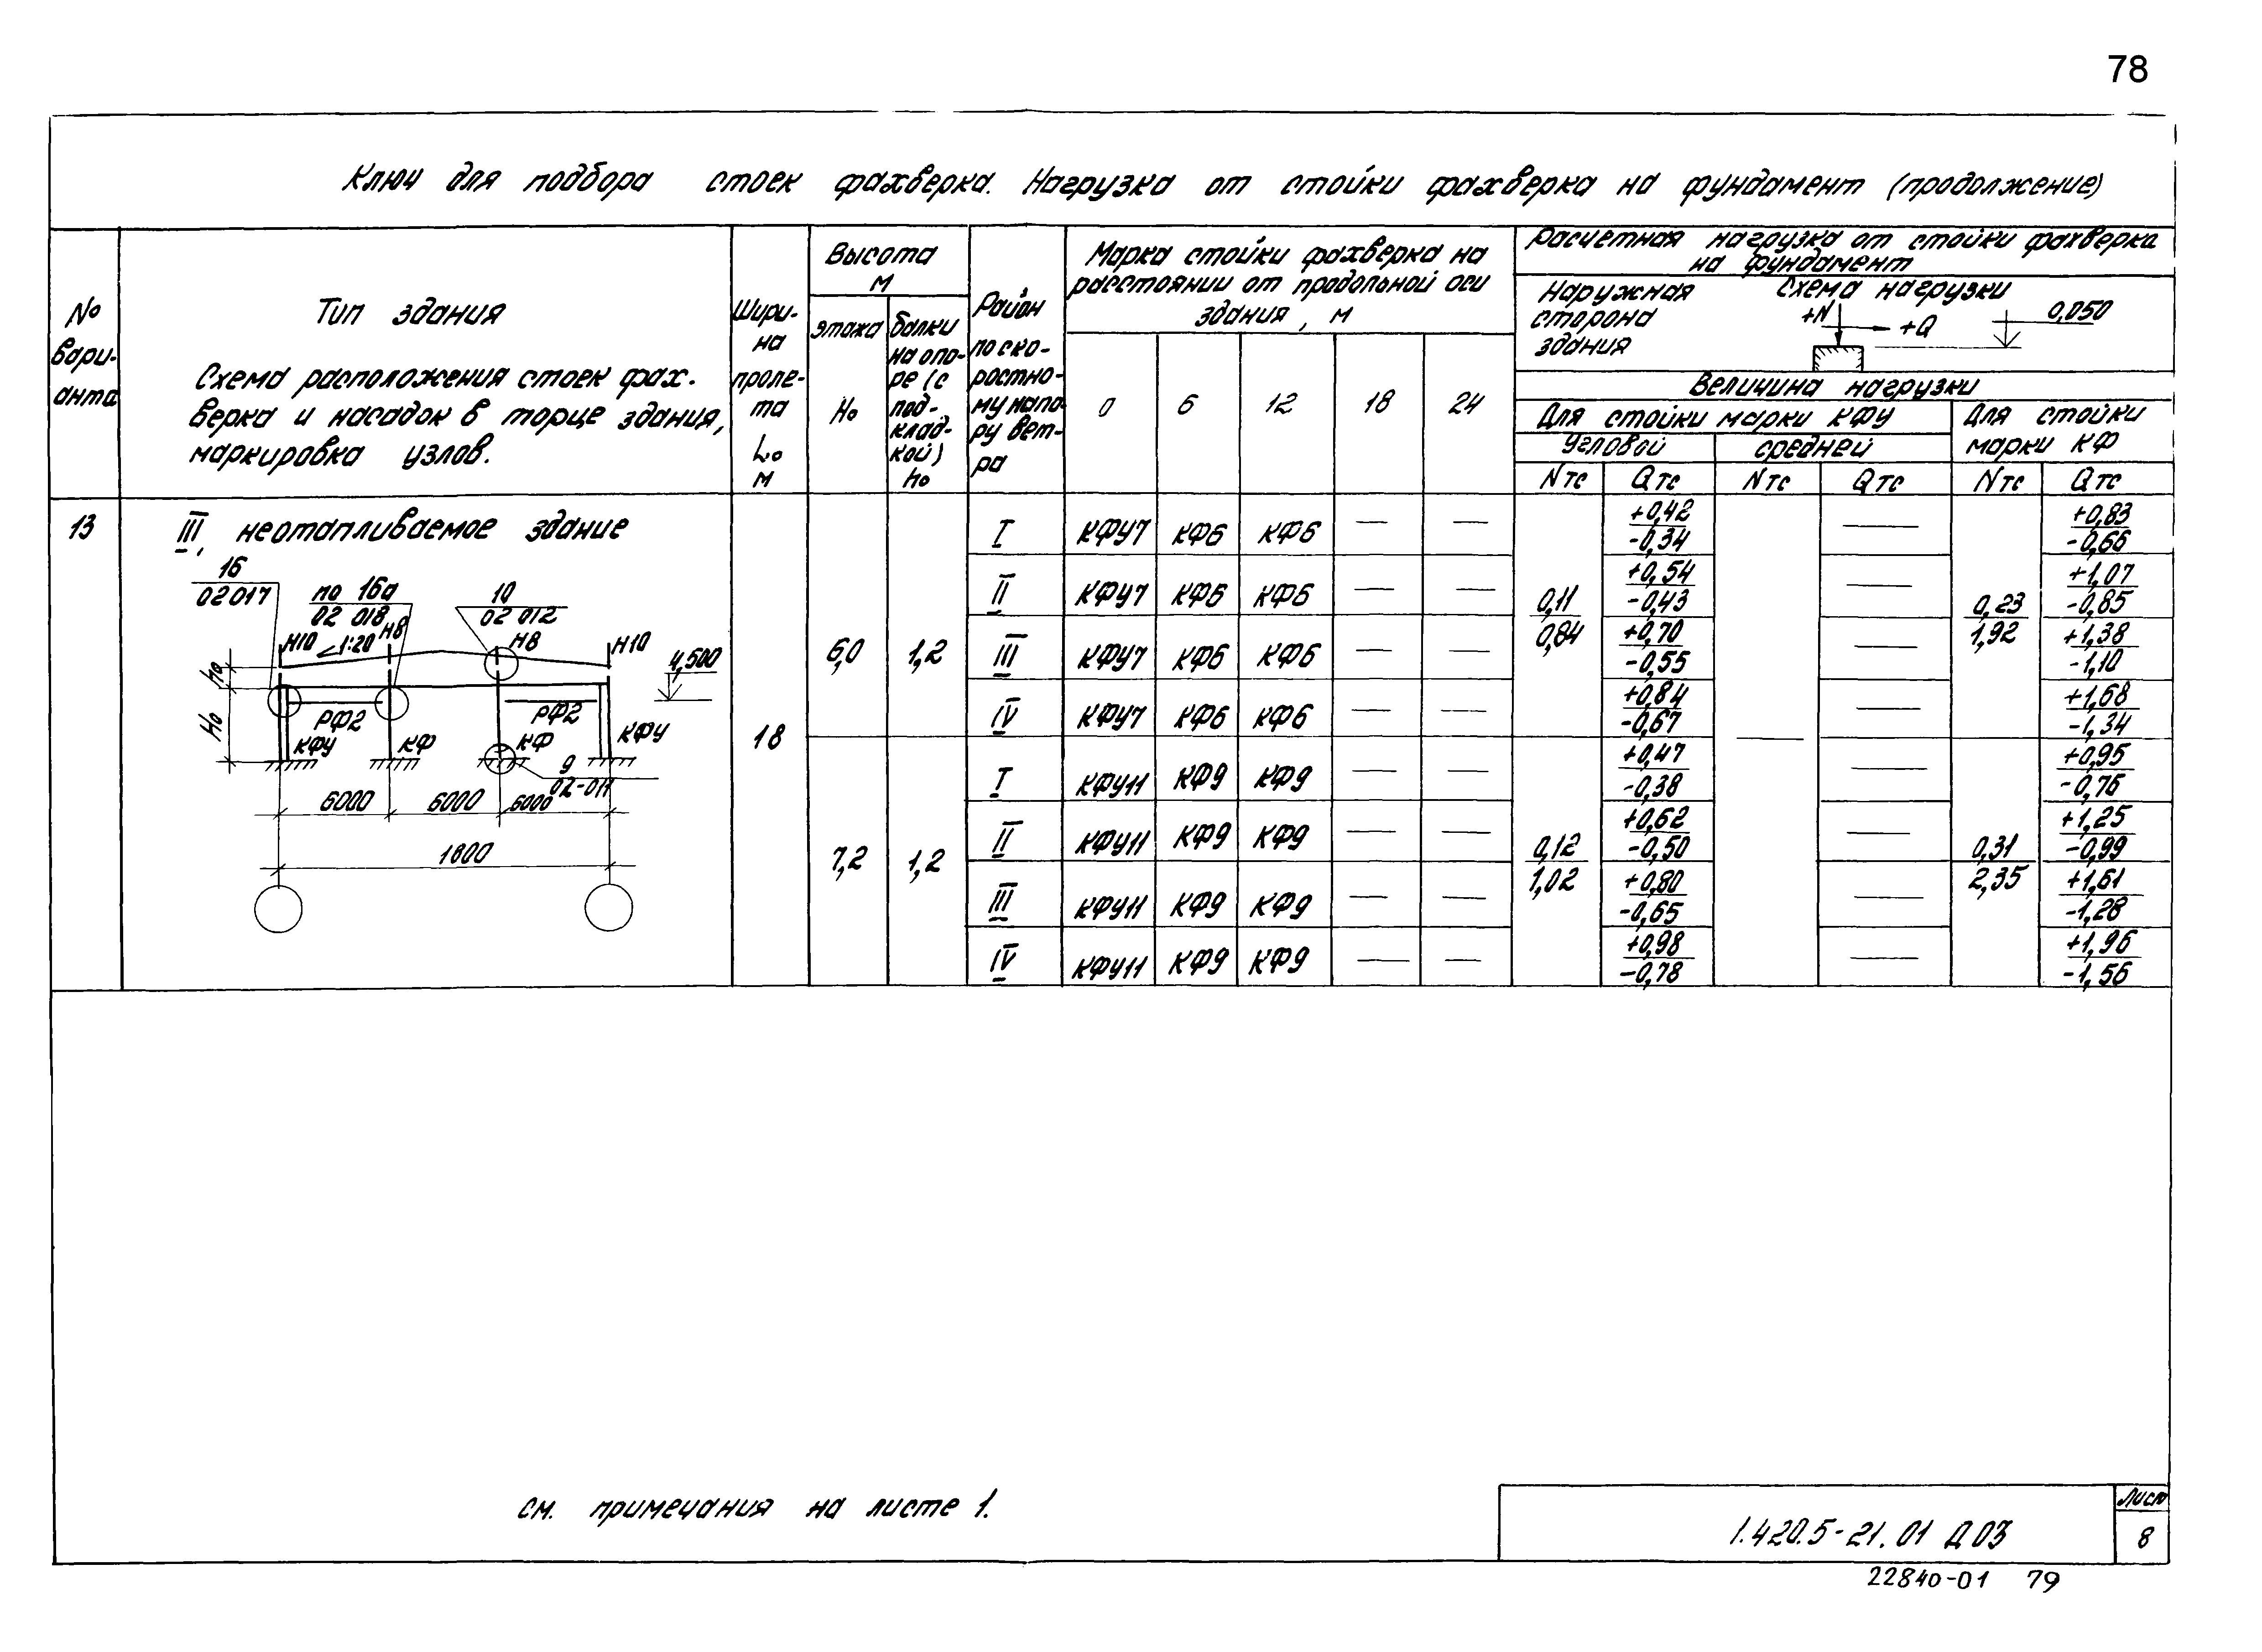 78
Ключ для подбора стоек фахверка. Нагрузка от стойки фахверка на фундамент (продолжение)
№ вари-анта
Тип здания
Схема расположения стоек фах-
верка и насадок в торце здания,
маркировка узлов.
Шири-на проле-та L₀ м
Высота м
этажа H₀
балки на опо-ре (с под-клад-кой) h₀
Район по ско-ростно-му напо-ру вет-ра
Марка стойки фахверка на
расстоянии от продольной оси
здания, м
0 6 12 18 24
Расчетная нагрузка от стойки фахверка
на фундамент
Наружная сторона здания
Схема нагрузки
+N +Q 0,050
Величина нагрузки
Для стойки марки КФУ
Для стойки марки КФ
угловой средней
N тс Q тс N тс Q тс N тс Q тс
13
III, неотапливаемое здание
16
02 017
по 16а
02 018
10
02 012
Н10 1:20 Н8 Н8 Н10
4,500
h₀
H₀
РФ2 РФ2
КФУ КФ КФ КФУ
9
02-011
6000 6000 6000
1800
18
6,0 1,2
0,11
0,84
0,23
1,92
I КФУ7 КФ6 КФ6 — — +0,42 -0,34 — +0,83 -0,66
II КФУ7 КФ6 КФ6 — — +0,54 -0,43 — +1,07 -0,85
III КФУ7 КФ6 КФ6 — — +0,70 -0,55 — +1,38 -1,10
IV КФУ7 КФ6 КФ6 — — +0,84 -0,67 — +1,68 -1,34
7,2 1,2
0,12
1,02
—
0,31
2,35
I КФУ11 КФ9 КФ9 — — +0,47 -0,38 — +0,95 -0,76
II КФУ11 КФ9 КФ9 — — +0,62 -0,50 — +1,25 -0,99
III КФУ11 КФ9 КФ9 — — +0,80 -0,65 — +1,61 -1,28
IV КФУ11 КФ9 КФ9 — — +0,98 -0,78 — +1,96 -1,56
см. примечания на листе 1.
1.420.5-21.01 Д03
Лист
8
22840-01 79